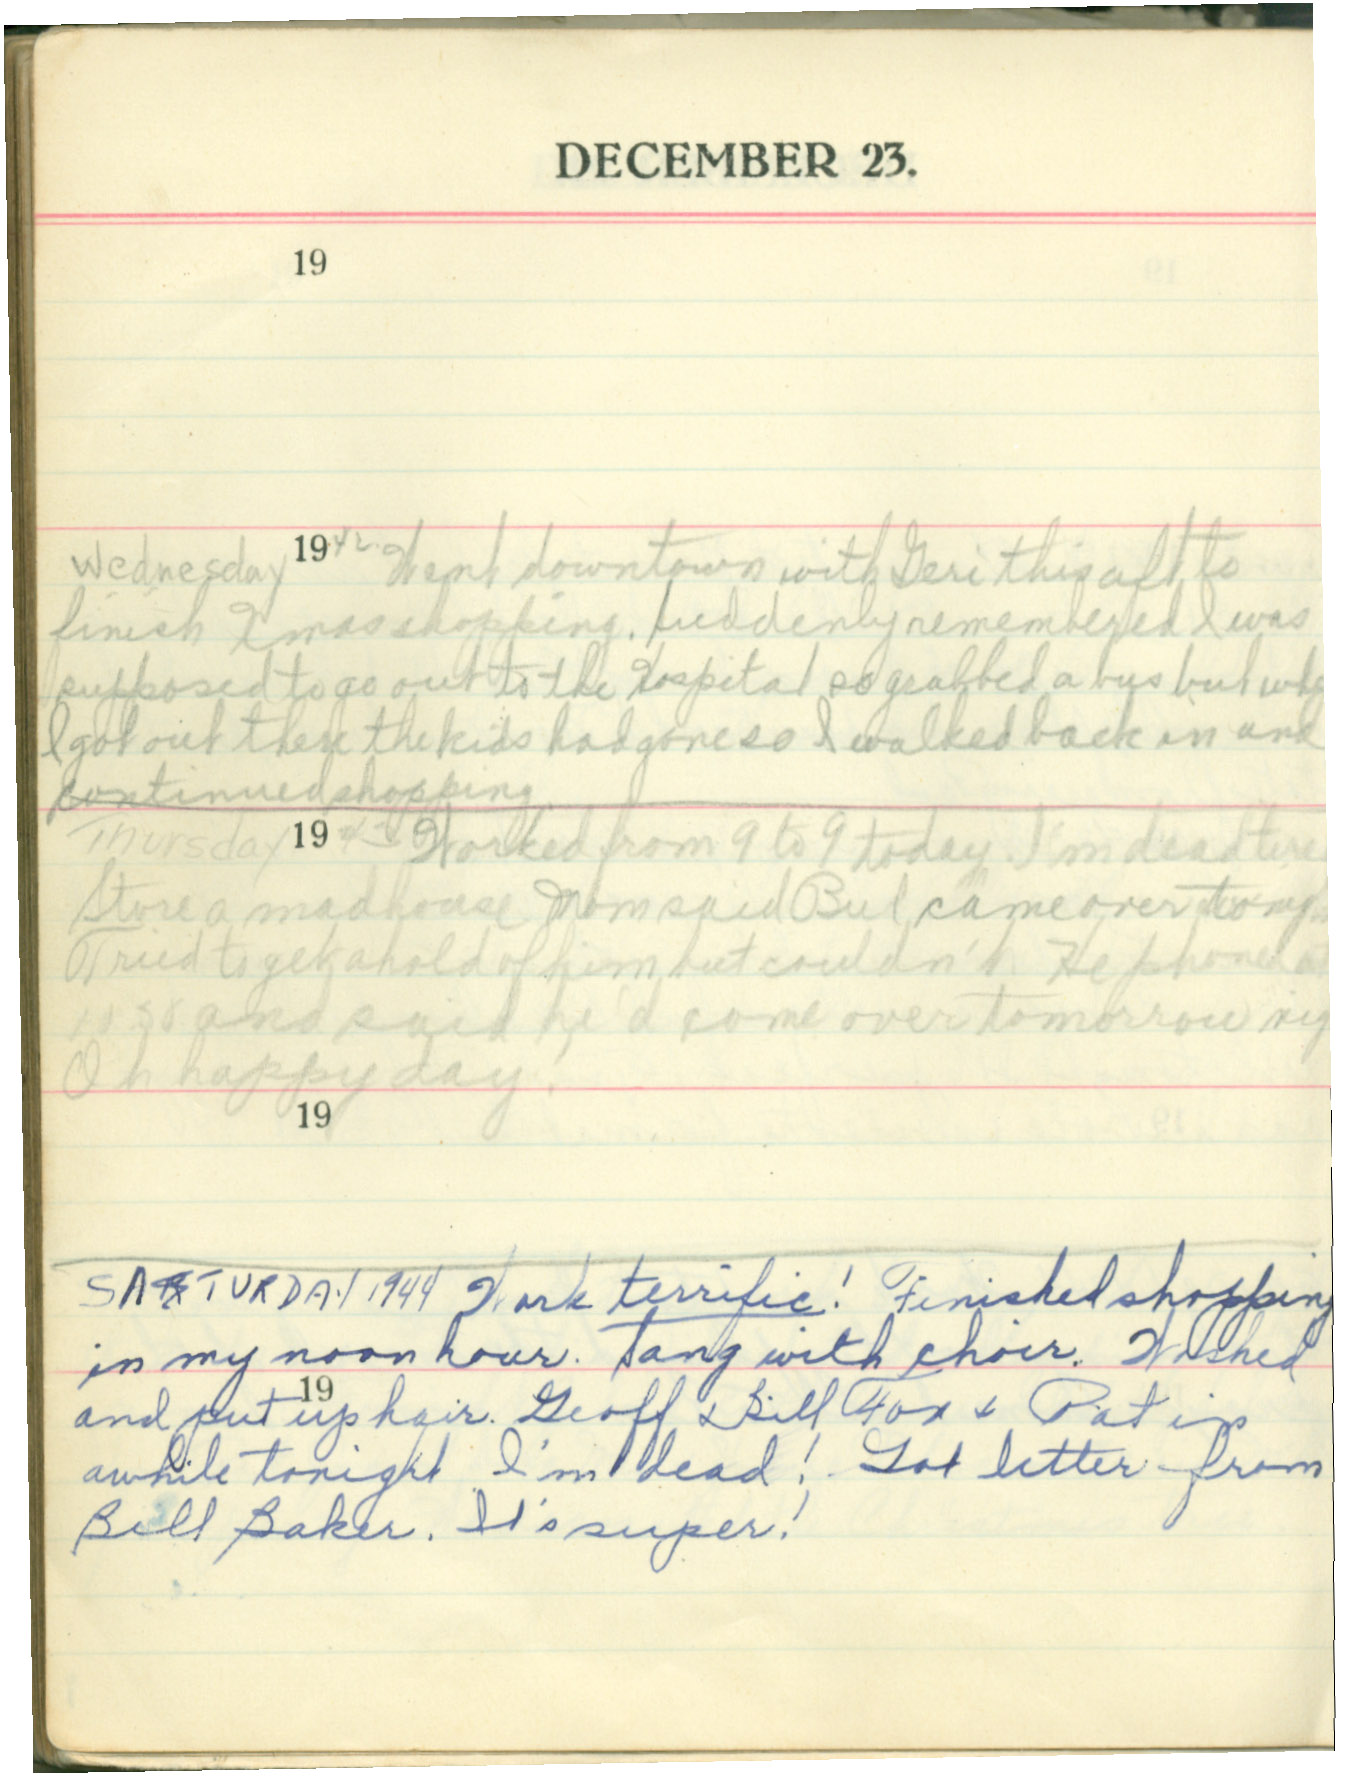 DECEMBER 23.
19
Wednesday 1942. Went downtown with Geri this aft to
finish Xmas shopping. Suddenly remembered I was
supposed to go out to the Hospital so grabbed a bus but whe
I got out there the kids had gone so I walked back in and
continued shopping
Thursday 1943 Worked from 9 to 9 today. I'm dead tire
Store a madhouse Mom said Bill came over tonig
Tried to get ahold of him but couldn't He phoned at
and said he'd come over tomorrow nig
Oh happy day!
19
SATURDAY 1944 Work terrific! Finished shopping
in my noon hour. Sang with choir. Washed
19
and put up hair. Geoff & Bill Fox & Pat in
awhile tonight I'm dead! Got letter from
Bill Baker. It's super!